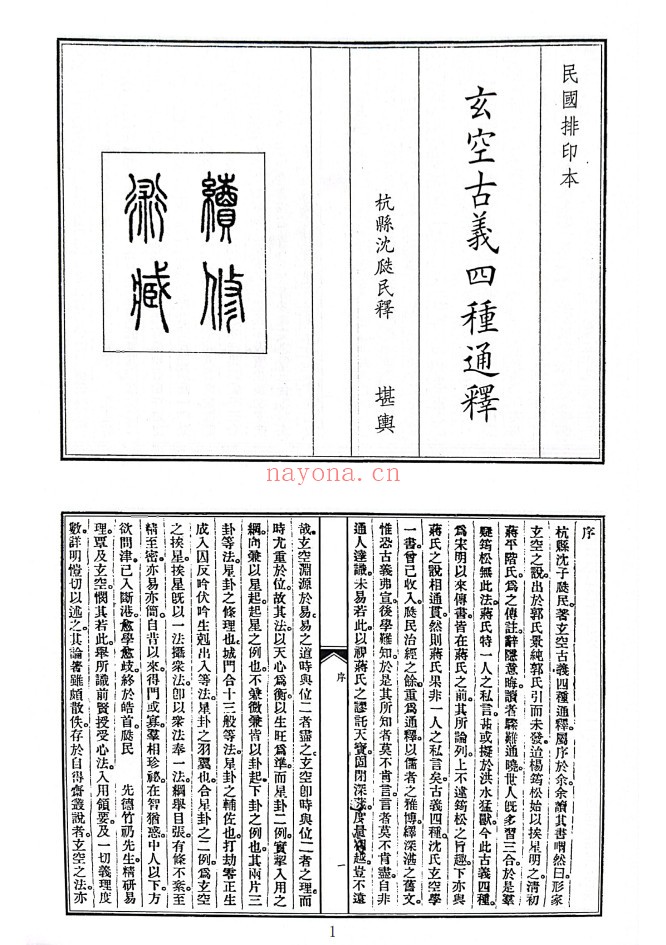 民國排印本
玄空古義四種通釋
杭縣沈瓞民釋　堪輿
續修
術藏
nayona.cn
序
杭縣沈子瓞民著玄空古義四種通釋屬序於余余讀其書喟然曰形家
玄空之說出於郭氏景純郭氏引而未發迨楊筠松始以挨星明之清初
蔣平階氏爲之傳註辭隱意晦讀者驟難通曉世人旣多習三合於是羣
疑筠松無此法蔣氏特一人之私言甚或擬於洪水猛獸今此古義四種
爲宋明以來傳書皆在蔣氏之前其所論列上不違筠松之旨趣下亦與
蔣氏之說相通貫然則蔣氏果非一人之私言矣古義四種沈氏玄空學
一書曾已收入瓞民治經之餘重爲通釋以儒者之雅博繹深湛之舊文
惟恐古義弗宣後學難知於是其所知者莫不肯言言者莫不肯盡自非
通人達識未易若此以視蔣氏之謬託天寶固閉深藏度量相越豈不遠
哉玄空淵源於易易之道時與位二者盡之玄空卽時與位二者之理而
時尤重於位故其法以天心爲衡以生旺爲準而星卦二例實挈入用之
綱向兼以星起起星之例也不兼微兼皆以卦起下卦之例也其兩片三
卦等法星卦之條理也城門合十三般等法星卦之輔佐也打劫零正生
成入囚反吟伏吟生剋出入等法星卦之羽翼也合星卦之二例爲玄空
之挨星挨星旣以一法攝衆法卽以衆法奉一法綱舉目張有條不紊至
精至密亦易亦簡自昔以來得門或寡羣相珍祕在智猶惑中人以下方
欲問津已入斷港愈學愈歧終於皓首瓞民　先德竹礽先生精研易
理覃及玄空憫其若此舉所識前賢授受心法入用領要及一切義理度
數詳明愷切以述之其論著雖頗散佚存於自得齋叢說者玄空之法亦
序
一
1